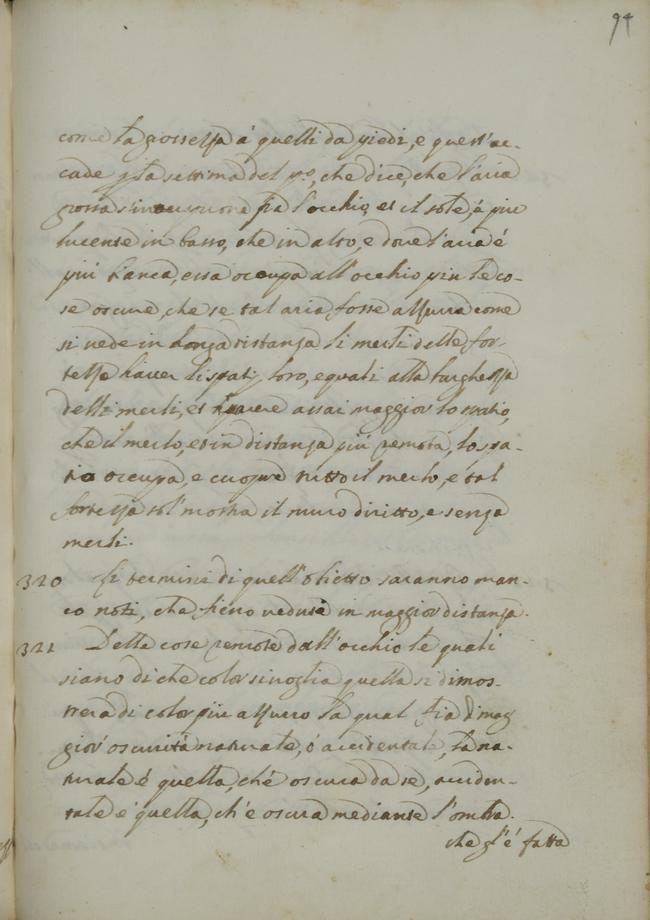 94
come la grossezza à quelli da piedi, e quest'ac-
cade p la settima del p.º, che dice, che l'aria
grossa s'interpone fra l'occhio, et il sole, è piu
lucente in basso, che in alto, e dove l'aria é
piú bianca, essa occupa all'occhio piu le co-
se oscure, che se tal aria fosse azzurra come
si vede in longa distanza li merli delle for-
tezze haver li spatij loro, equali alla larghezza
delli merli, et parere assai maggior lo spatio,
che il merlo, et in distanza piú remota, lo spa-
tio occupa, e cuopre tutto il merlo, e tal
fortezza sol' mostra il muro diritto, e senza
merli.
320 Li termini di quell'obietto saranno man-
co noti, che fieno veduti in maggior distanza.
321 Delle cose remote dall'occhio le quali
siano di che color si voglia quella si dimos-
trerà di color piu azzurro la qual fia di mag
gior oscurità naturale, ó accidentale, la na-
turale é quella, ché oscura da se, acciden-
tale é quella, ch'é oscura mediante l'ombra.
che gl'é fatta